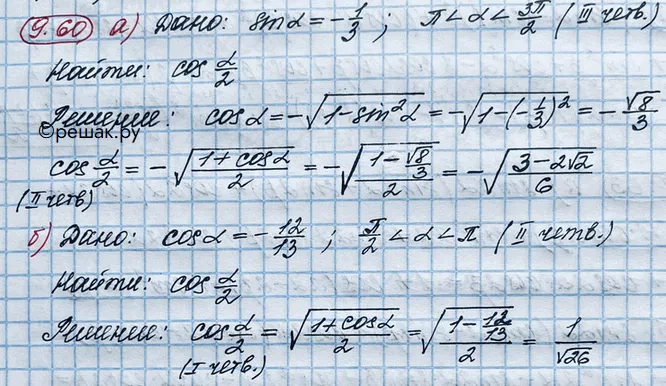 9.60 а) Дано: sinα = -1/3 ; π < α < 3π/2 (III четв.)
Найти: cos α/2
Решение: cosα = -√(1-sin²α) = -√(1-(-1/3)²) = -√8/3
©решак.by
cos α/2 = -√((1+cosα)/2) = -√((1-√8/3)/2) = -√((3-2√2)/6)
(II четв)
б) Дано: cosα = -12/13 ; π/2 < α < π (II четв.)
Найти: cos α/2
Решение: cos α/2 = √((1+cosα)/2) = √((1-12/13)/2) = 1/√26
(I четв.)